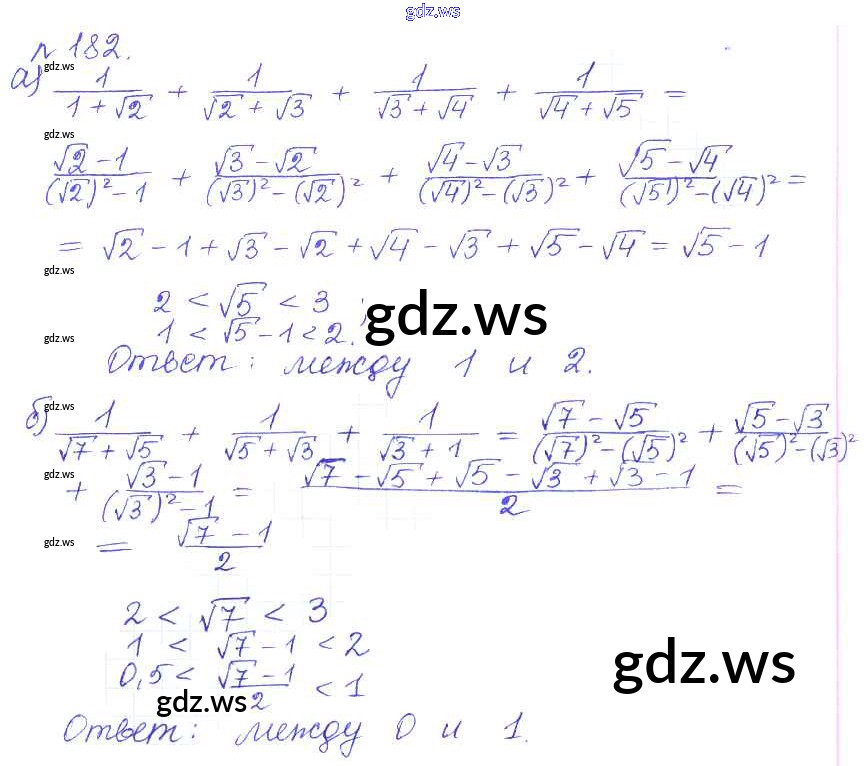 gdz.ws
№ 182.
gdz.ws
а) 1/(1 + √2) + 1/(√2 + √3) + 1/(√3 + √4) + 1/(√4 + √5) =
gdz.ws
(√2 - 1)/((√2)² - 1) + (√3 - √2)/((√3)² - (√2)²) + (√4 - √3)/((√4)² - (√3)²) + (√5 - √4)/((√5)² - (√4)²) =
gdz.ws
= √2 - 1 + √3 - √2 + √4 - √3 + √5 - √4 = √5 - 1
gdz.ws
2 < √5 < 3 ;
gdz.ws
1 < √5 - 1 < 2.
gdz.ws
Ответ: между 1 и 2.
gdz.ws
б) 1/(√7 + √5) + 1/(√5 + √3) + 1/(√3 + 1) = (√7 - √5)/((√7)² - (√5)²) + (√5 - √3)/((√5)² - (√3)²)
gdz.ws
+ (√3 - 1)/((√3)² - 1) = (√7 - √5 + √5 - √3 + √3 - 1)/2 =
gdz.ws
= (√7 - 1)/2
2 < √7 < 3
1 < √7 - 1 < 2
gdz.ws
0,5 < (√7 - 1)/2 < 1
gdz.ws
Ответ: между 0 и 1.